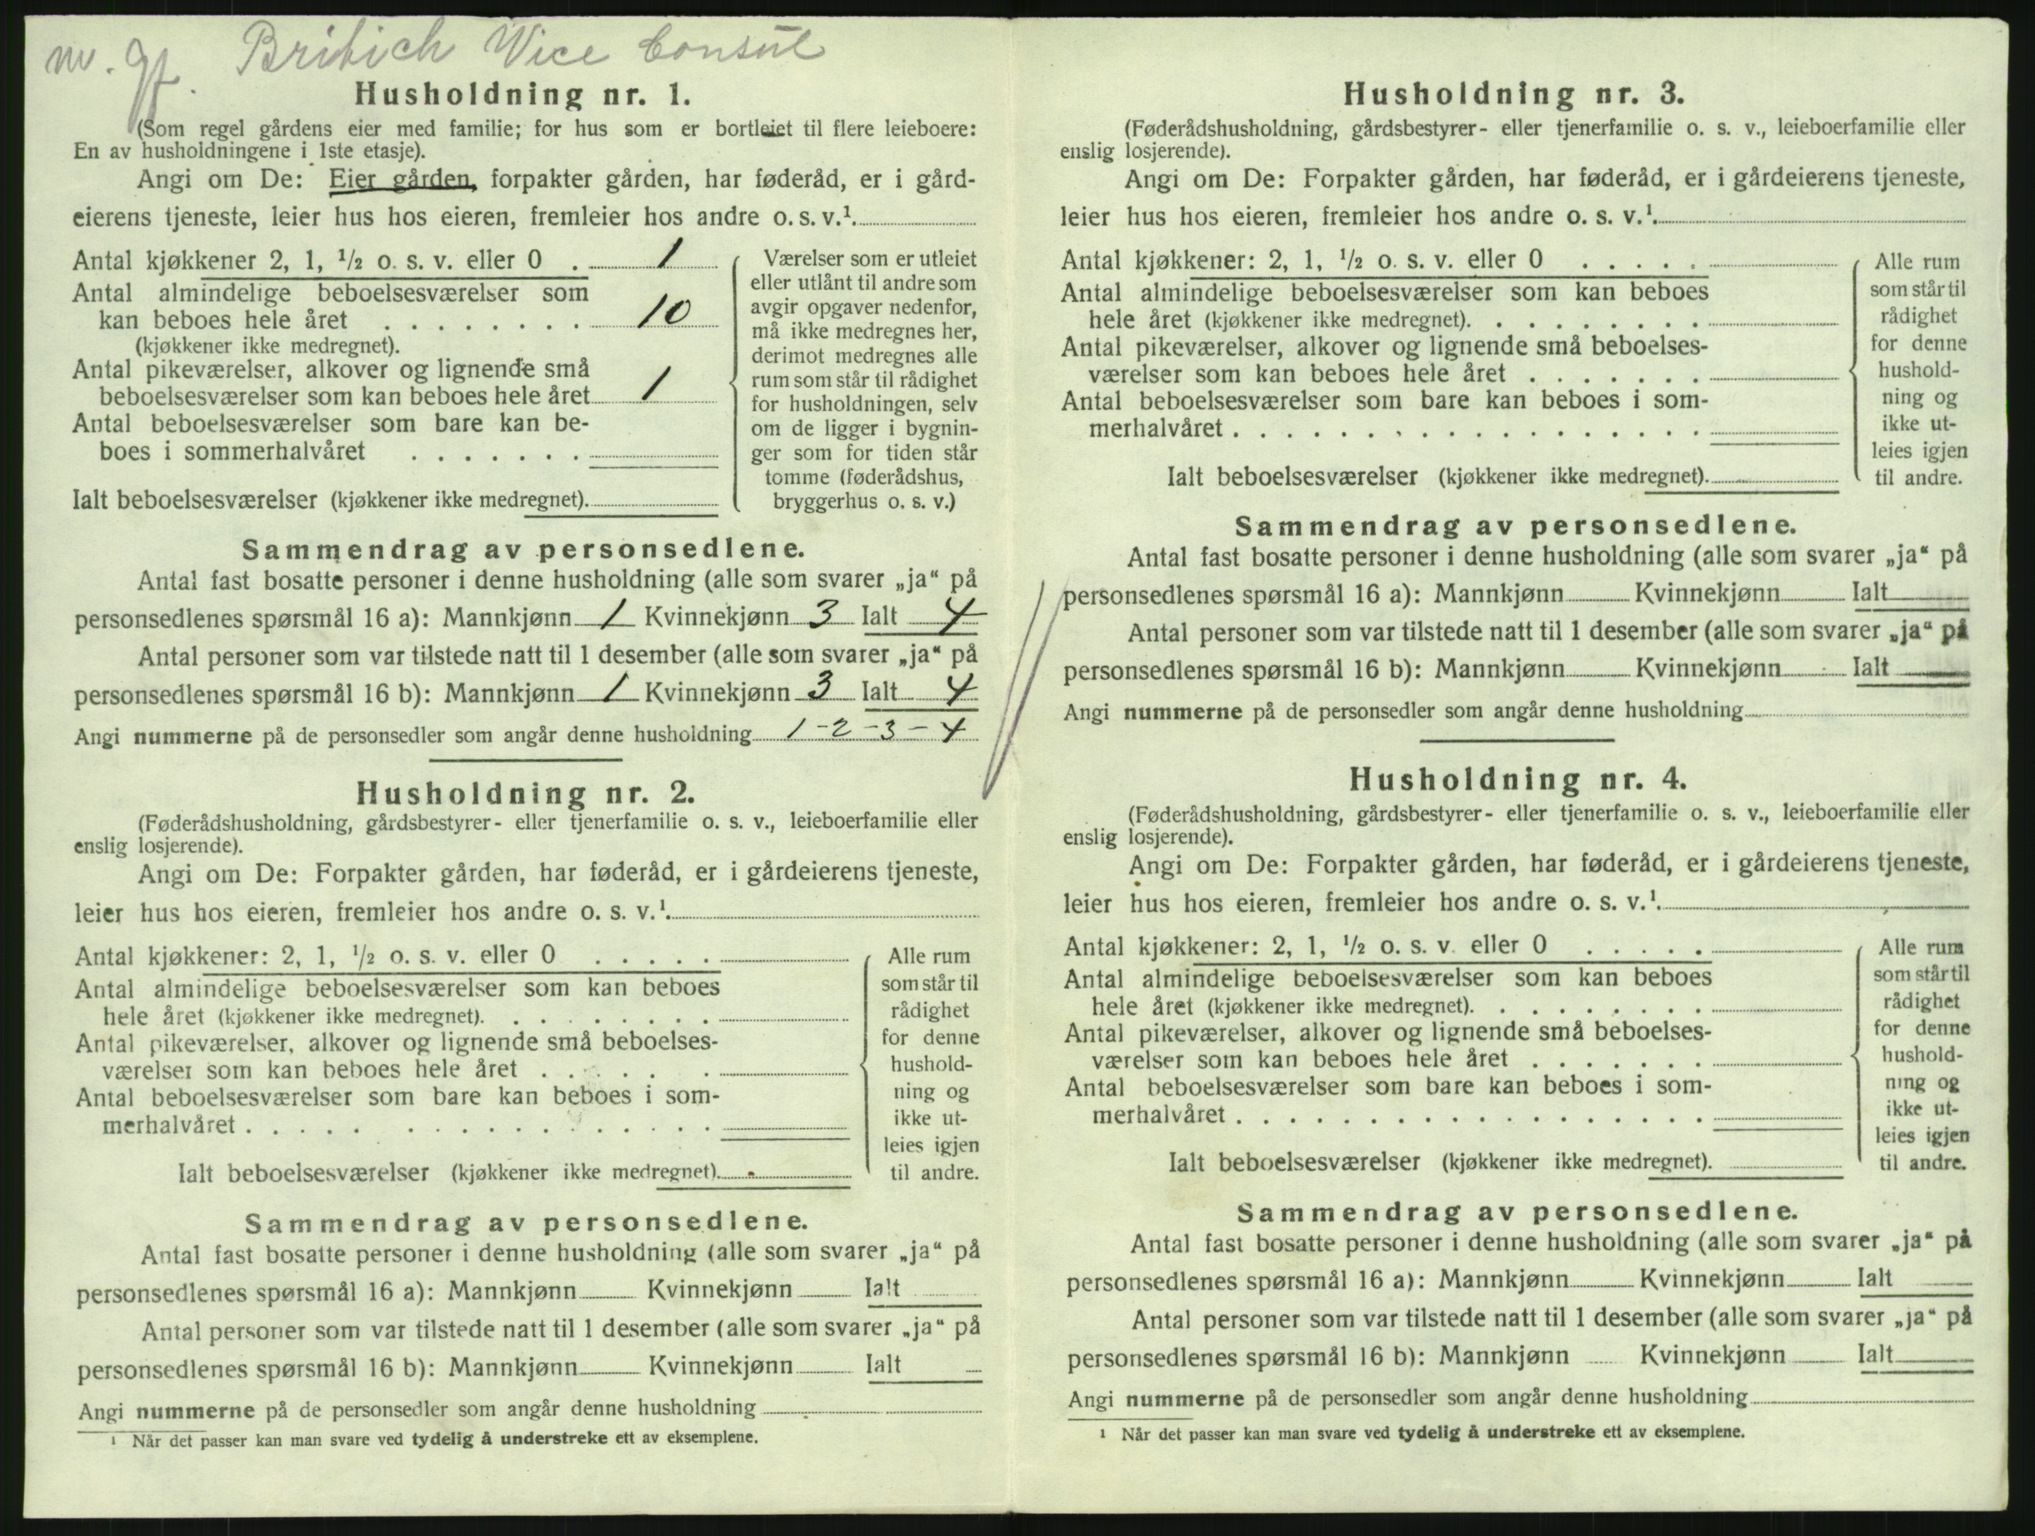 nv. gf. Britich Vice Consul
Husholdning nr. 1.
(Som regel gårdens eier med familie; for hus som er bortleiet til flere leieboere:
En av husholdningene i 1ste etasje).
Angi om De: Eier gården, forpakter gården, har føderåd, er i gård-
eierens tjeneste, leier hus hos eieren, fremleier hos andre o. s. v.¹
Antal kjøkkener 2, 1, ½ o. s. v. eller 0 . 1
Antal almindelige beboelsesværelser som
kan beboes hele året . . . . . . . . 10
(kjøkkener ikke medregnet).
Antal pikeværelser, alkover og lignende små
beboelsesværelser som kan beboes hele året 1
Antal beboelsesværelser som bare kan be-
boes i sommerhalvåret . . . . . . .
Ialt beboelsesværelser (kjøkkener ikke medregnet).
Værelser som er utleiet
eller utlånt til andre som
avgir opgaver nedenfor,
må ikke medregnes her,
derimot medregnes alle
rum som står til rådighet
for husholdningen, selv
om de ligger i bygnin-
ger som for tiden står
tomme (føderådshus,
bryggerhus o. s. v.)
Sammendrag av personsedlene.
Antal fast bosatte personer i denne husholdning (alle som svarer „ja“ på
personsedlenes spørsmål 16 a): Mannkjønn 1 Kvinnekjønn 3 Ialt 4
Antal personer som var tilstede natt til 1 desember (alle som svarer „ja“ på
personsedlenes spørsmål 16 b): Mannkjønn 1 Kvinnekjønn 3 Ialt 4
Angi nummerne på de personsedler som angår denne husholdning 1-2-3-4
Husholdning nr. 2.
(Føderådshusholdning, gårdsbestyrer- eller tjenerfamilie o. s. v., leieboerfamilie eller
enslig losjerende).
Angi om De: Forpakter gården, har føderåd, er i gårdeierens tjeneste,
leier hus hos eieren, fremleier hos andre o. s. v.¹
Antal kjøkkener: 2, 1, ½ o. s. v. eller 0 . . . . .
Antal almindelige beboelsesværelser som kan beboes
hele året (kjøkkener ikke medregnet). . . . . . . .
Antal pikeværelser, alkover og lignende små beboelses-
værelser som kan beboes hele året . . . . . . .
Antal beboelsesværelser som bare kan beboes i som-
merhalvåret . . . . . . . . . . . . . . . .
Ialt beboelsesværelser (kjøkkener ikke medregnet).
Alle rum
som står til
rådighet
for denne
hushold-
ning og
ikke ut-
leies igjen
til andre.
Sammendrag av personsedlene.
Antal fast bosatte personer i denne husholdning (alle som svarer „ja“ på
personsedlenes spørsmål 16 a): Mannkjønn Kvinnekjønn Ialt
Antal personer som var tilstede natt til 1 desember (alle som svarer „ja“ på
personsedlenes spørsmål 16 b): Mannkjønn Kvinnekjønn Ialt
Angi nummerne på de personsedler som angår denne husholdning
¹ Når det passer kan man svare ved tydelig å understreke ett av eksemplene.
Husholdning nr. 3.
(Føderådshusholdning, gårdsbestyrer- eller tjenerfamilie o. s. v., leieboerfamilie eller
enslig losjerende).
Angi om De: Forpakter gården, har føderåd, er i gårdeierens tjeneste,
leier hus hos eieren, fremleier hos andre o. s. v.¹
Antal kjøkkener: 2, 1, ½ o. s. v. eller 0 . . . . .
Antal almindelige beboelsesværelser som kan beboes
hele året (kjøkkener ikke medregnet). . . . . . . .
Antal pikeværelser, alkover og lignende små beboelses-
værelser som kan beboes hele året . . . . . . .
Antal beboelsesværelser som bare kan beboes i som-
merhalvåret . . . . . . . . . . . . . . . . .
Ialt beboelsesværelser (kjøkkener ikke medregnet).
Alle rum
som står til
rådighet
for denne
hushold-
ning og
ikke ut-
leies igjen
til andre.
Sammendrag av personsedlene.
Antal fast bosatte personer i denne husholdning (alle som svarer „ja“ på
personsedlenes spørsmål 16 a): Mannkjønn Kvinnekjønn Ialt
Antal personer som var tilstede natt til 1 desember (alle som svarer „ja“ på
personsedlenes spørsmål 16 b): Mannkjønn Kvinnekjønn Ialt
Angi nummerne på de personsedler som angår denne husholdning
Husholdning nr. 4.
(Føderådshusholdning, gårdsbestyrer- eller tjenerfamilie o. s. v., leieboerfamilie eller
enslig losjerende).
Angi om De: Forpakter gården, har føderåd, er i gårdeierens tjeneste,
leier hus hos eieren, fremleier hos andre o. s. v.¹
Antal kjøkkener: 2, 1, ½ o. s. v. eller 0 . . . . .
Antal almindelige beboelsesværelser som kan beboes
hele året (kjøkkener ikke medregnet). . . . . . . .
Antal pikeværelser, alkover og lignende små beboelses-
værelser som kan beboes hele året . . . . . . .
Antal beboelsesværelser som bare kan beboes i som-
merhalvåret . . . . . . . . . . . . . . . . .
Ialt beboelsesværelser (kjøkkener ikke medregnet).
Alle rum
som står til
rådighet
for denne
hushold-
ning og
ikke ut-
leies igjen
til andre.
Sammendrag av personsedlene.
Antal fast bosatte personer i denne husholdning (alle som svarer „ja“ på
personsedlenes spørsmål 16 a): Mannkjønn Kvinnekjønn Ialt
Antal personer som var tilstede natt til 1 desember (alle som svarer „ja“ på
personsedlenes spørsmål 16 b): Mannkjønn Kvinnekjønn Ialt
Angi nummerne på de personsedler som angår denne husholdning
¹ Når det passer kan man svare ved tydelig å understreke ett av eksemplene.